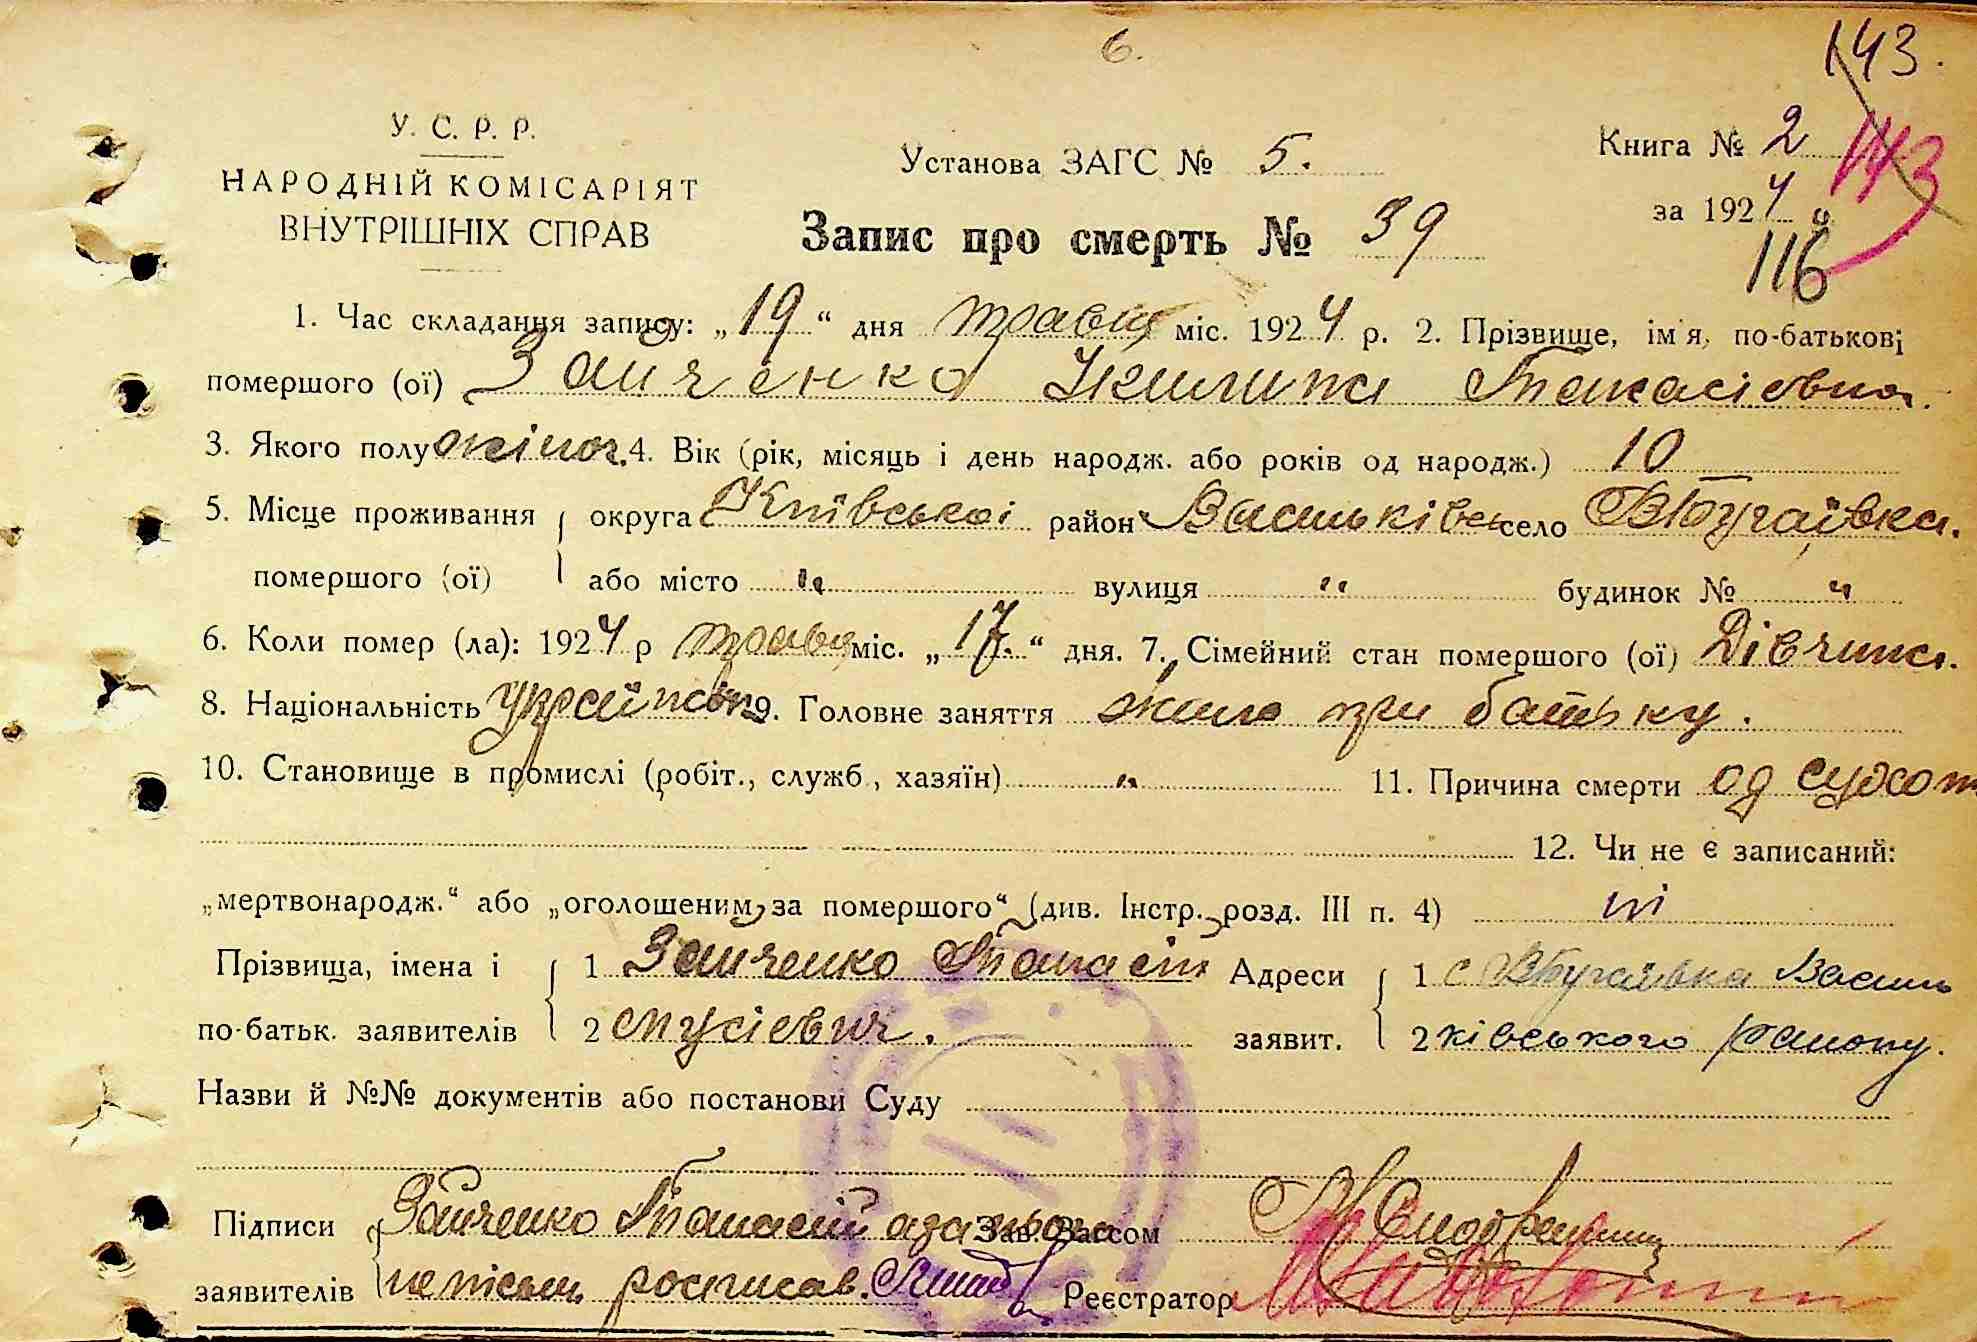 6.
143.
У. С. Р. Р.
НАРОДНІЙ КОМІСАРІЯТ
ВНУТРІШНІХ СПРАВ
Установа ЗАГС № 5.
Книга № 2
143
за 1924
116
Запис про смерть № 39
1. Час складання запису: „19“ дня травця міс. 1924 р. 2. Прізвище, ім'я, по-батькові
помершого (ої) Зайченко Килина Панасіевна.
3. Якого полу жіноч. 4. Вік (рік, місяць і день народж. або років од народж.) 10
5. Місце проживання округа Київської район Васильківськ село
помершого (ої) або місто " вулиця " будинок № "
6. Коли помер (ла): 1924 р травця міс. „17.“ дня. 7. Сімейний стан помершого (ої) Дівчина.
8. Національність 9. Головне заняття жила при батьку.
10. Становище в промислі (робіт., служб., хазяїн) " 11. Причина смерти од сухот
12. Чи не є записаний:
„мертвонародж.“ або „оголошеним за помершого“ (див. Інстр. розд. III п. 4) ні
Прізвища, імена і 1 Зайченко Панасій Адреси 1 с Василь
по-батьк. заявителів 2 заявит. 2 ківського району.
Назви й №№ документів або постанови Суду
Підписи Зайченко Панасій а за його Зав. Загсом
заявителів неписьм росписав. Реєстратор